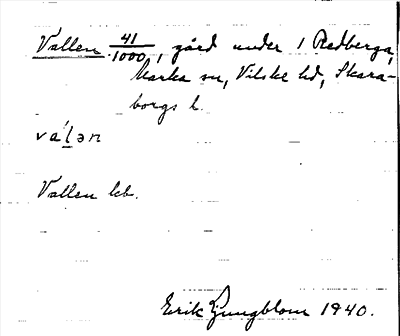 Vallen 41/1000, gård under 1 Redberga,
Marka sn, Vilske hd, Skara-
borgs l.
va'lən
Vallen kb.
Erik Ljungblom 1940.